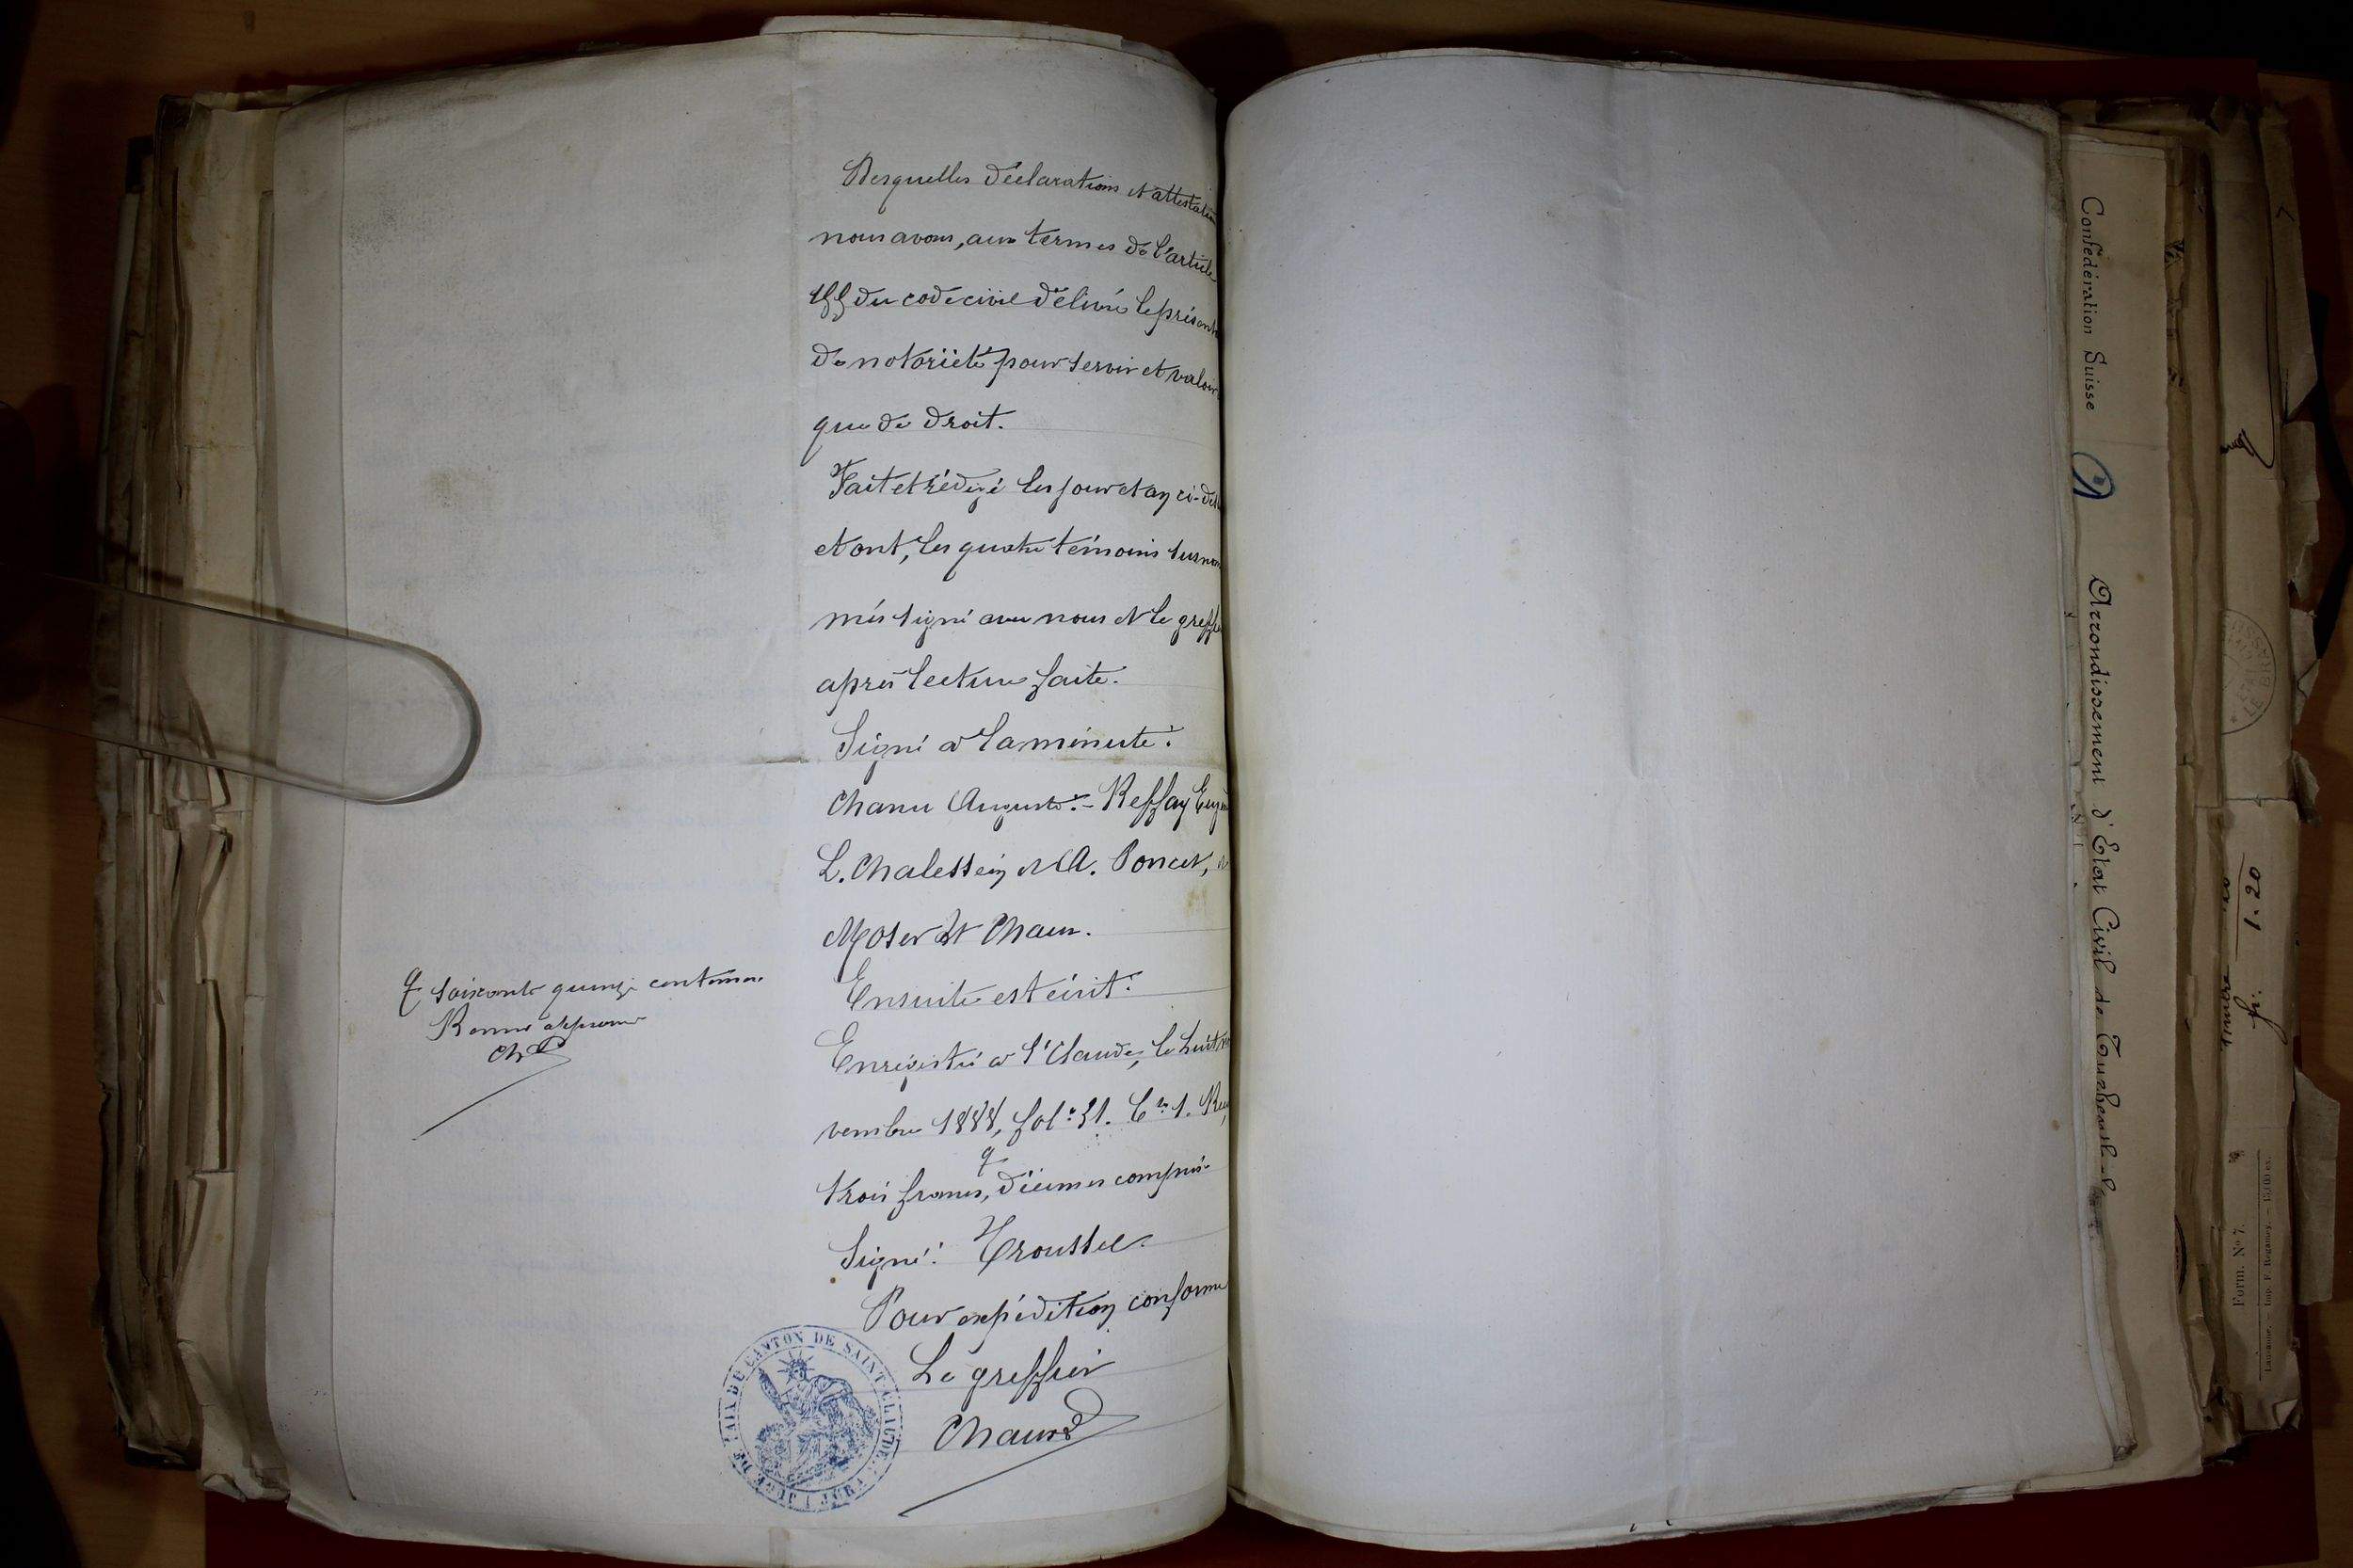 Desquelles déclarations et attestation
nous avons, aux termes de l'article
155 du code civil délivré le présent
de notoriété pour servir et valoir
que de droit.
Fait et rédigé les jour et an ci-des
et ont, les quatre témoins surnom
més signé avec nous et le greffier
après lecture faite.
Signé à la minute:
Chanu Auguste. - Reffay Eugè
L. Chalessin et A. Poncet,
Moser et Chaun.
Ensuite est écrit:
Enregistré à St Claude, le huit no
vembre 1888, fol: 31. Cse 1. Reçu
trois francs, décimes compris.
Signé: Troussel.
Pour expédition conforme
Le greffier
Chaun
soixante quinze centimes
Renvoi approuvé
Ch
JUGE DE PAIX DU CANTON DE SAINT-CLAUDE
JURA
Confédération Suisse
Arrondissement d'Etat Civil de
fr. 1.20
Form. No 7.